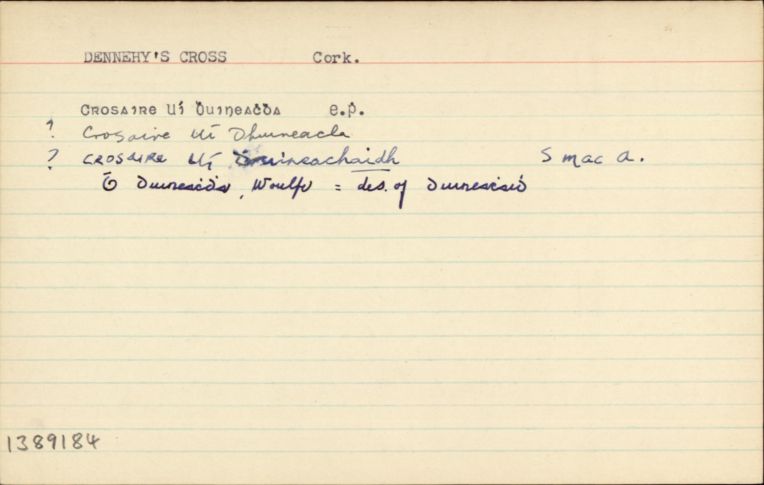 DENNEHY'S CROSS Cork.
Crosaire Uí Ḋuineaċḋa e.p.
? Crosaire Uí Dhuineacla
? Crosaire Uí Dhuineachaidh S mac A.
Ó Duineaċḋa, Woulfe = des. of Duineaċaiḋ
1389184